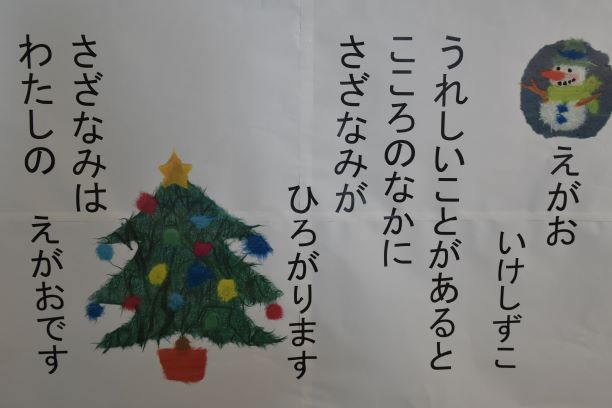 えがお
いけしずこ
うれしいことがあると
こころのなかに
さざなみが
ひろがります
さざなみは
わたしの　えがおです